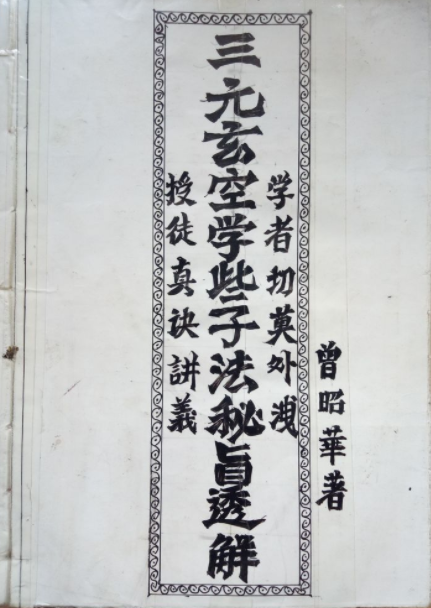 曾昭華著
学者切莫外洩
三元玄空学些子法秘旨透解
授徒真诀講義